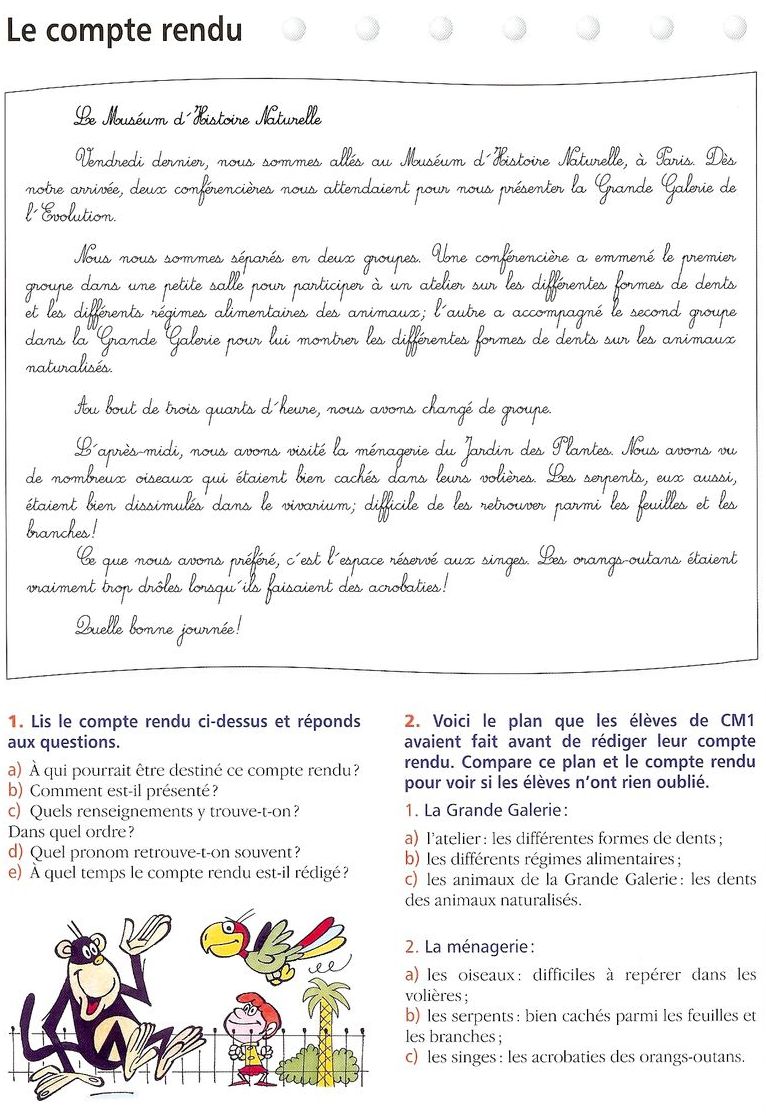 Le compte rendu
Le Muséum d'Histoire Naturelle
Vendredi dernier, nous sommes allés au Muséum d'Histoire Naturelle, à Paris. Dès
notre arrivée, deux conférencières nous attendaient pour nous présenter la Grande Galerie de
l'Evolution.
Nous nous sommes séparés en deux groupes. Une conférencière a emmené le premier
groupe dans une petite salle pour participer à un atelier sur les différentes formes de dents
et les différents régimes alimentaires des animaux; l'autre a accompagné le second groupe
dans la Grande Galerie pour lui montrer les différentes formes de dents sur les animaux
naturalisés.
Au bout de trois quarts d'heure, nous avons changé de groupe.
L'après-midi, nous avons visité la ménagerie du Jardin des Plantes. Nous avons vu
de nombreux oiseaux qui étaient bien cachés dans leurs volières. Les serpents, eux aussi,
étaient bien dissimulés dans le vivarium; difficile de les retrouver parmi les feuilles et les
branches!
Ce que nous avons préféré, c'est l'espace réservé aux singes. Les orangs-outans étaient
vraiment trop drôles lorsqu'ils faisaient des acrobaties!
Quelle bonne journée!
1. Lis le compte rendu ci-dessus et réponds
aux questions.
a) À qui pourrait être destiné ce compte rendu?
b) Comment est-il présenté?
c) Quels renseignements y trouve-t-on?
Dans quel ordre?
d) Quel pronom retrouve-t-on souvent?
e) À quel temps le compte rendu est-il rédigé?
2. Voici le plan que les élèves de CM1
avaient fait avant de rédiger leur compte
rendu. Compare ce plan et le compte rendu
pour voir si les élèves n'ont rien oublié.
1. La Grande Galerie:
a) l'atelier: les différentes formes de dents;
b) les différents régimes alimentaires;
c) les animaux de la Grande Galerie: les dents
des animaux naturalisés.
2. La ménagerie:
a) les oiseaux: difficiles à repérer dans les
volières;
b) les serpents: bien cachés parmi les feuilles et
les branches;
c) les singes: les acrobaties des orangs-outans.